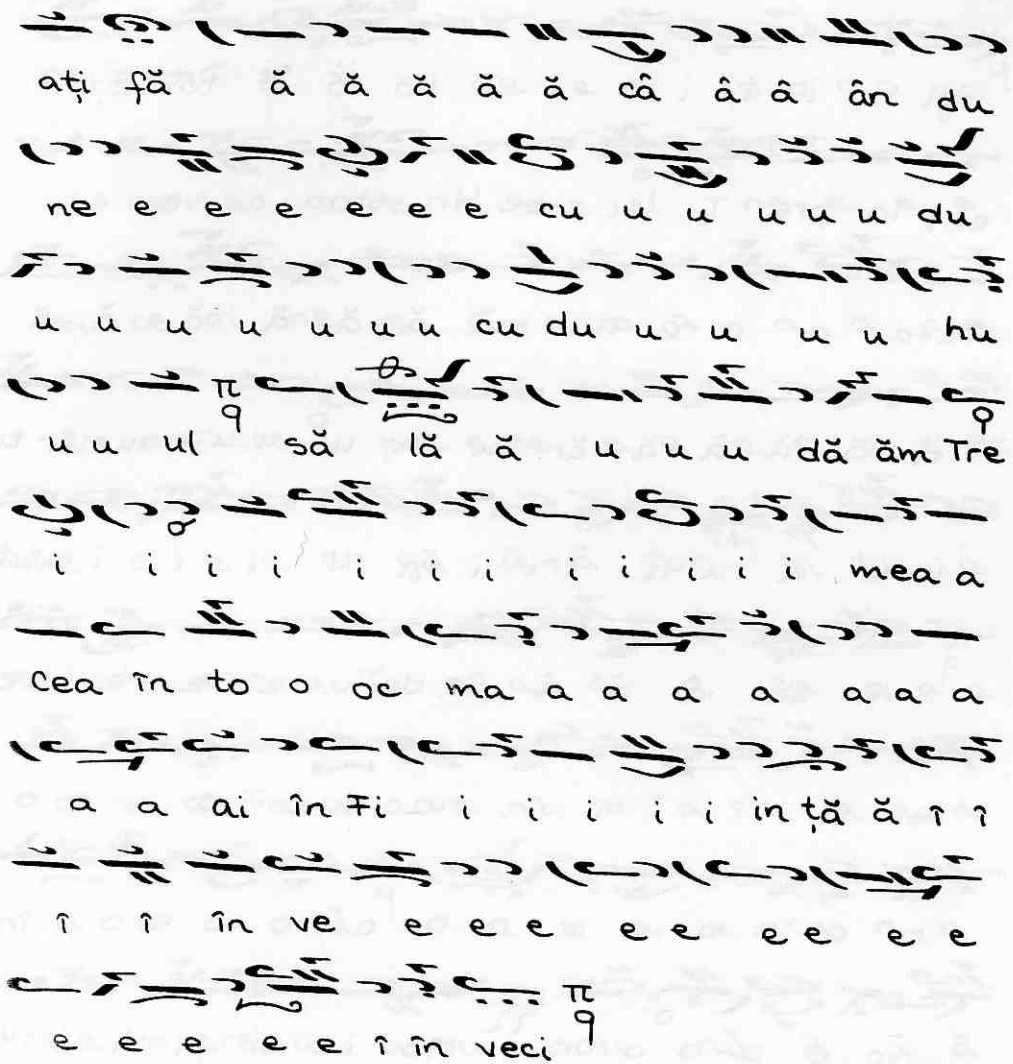 ați fă ă ă ă ă ă câ â â ân du
ne e e e e e e cu u u u u u du
u u u u u u u cu du u u u hu
π q
u u ul să lă ă u u u dă ăm Tre
i i i i i i i i i i i i mea a
cea în to o oc ma a a a a a a a
a a ai în Fi i i i i i in ță ă î î
î î în ve e e e e e e e e e
π q
e e e e e î în veci